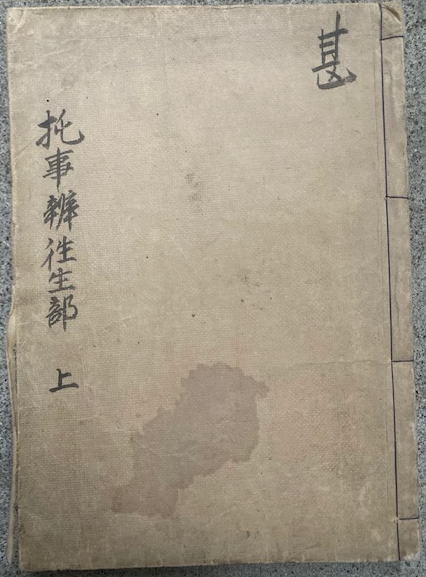 甚
托事辨徃生部 上